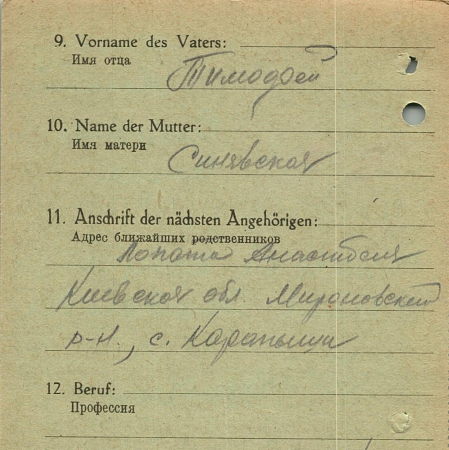 9. Vorname des Vaters:
Имя отца
Тимофей
10. Name der Mutter:
Имя матери
Синявская
11. Anschrift der nächsten Angehörigen:
Адрес ближайших родственников
Лопатая Анастасия
Киевская обл. Мироновский
р-н., с. Карапыши
12. Beruf:
Профессия